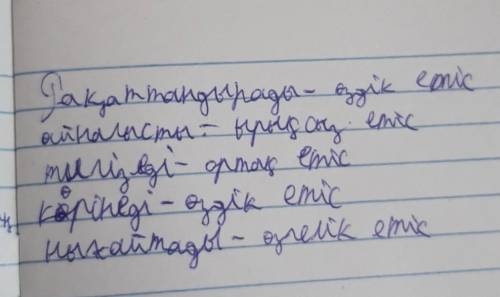 Рақаттандырады - өздік етіс
айналысты - ырықсыз етіс
тигізеді - ортақ етіс
көрінеді - өздік етіс
нығайтады - өзгелік етіс